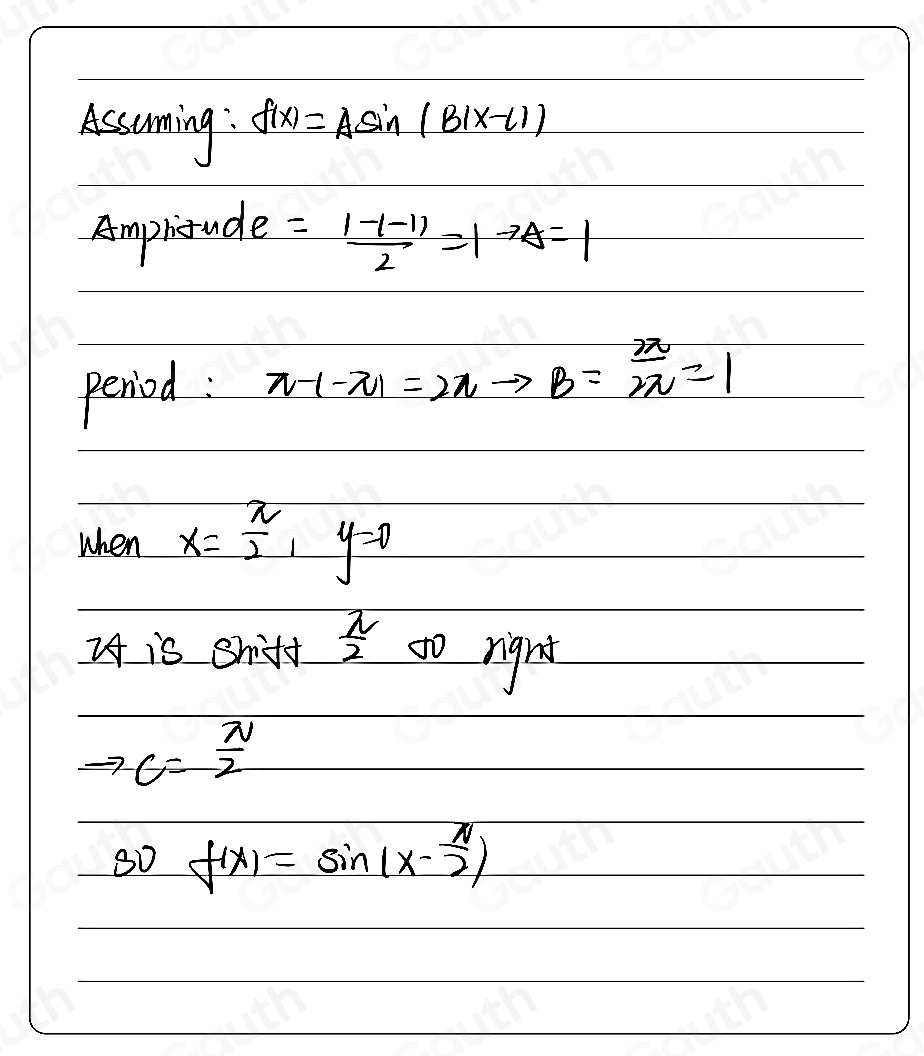 Assuming: f(x) = A sin (B(x-c))
Amplitude = \frac{1-(-1)}{2} = 1 → A = 1
period: π-(-π) = 2π → B = \frac{2π}{2π} = 1
when x = \frac{π}{2}, y=0
It is shift \frac{π}{2} to right
→ C = \frac{π}{2}
so f(x) = sin(x-\frac{π}{2})
Gauth